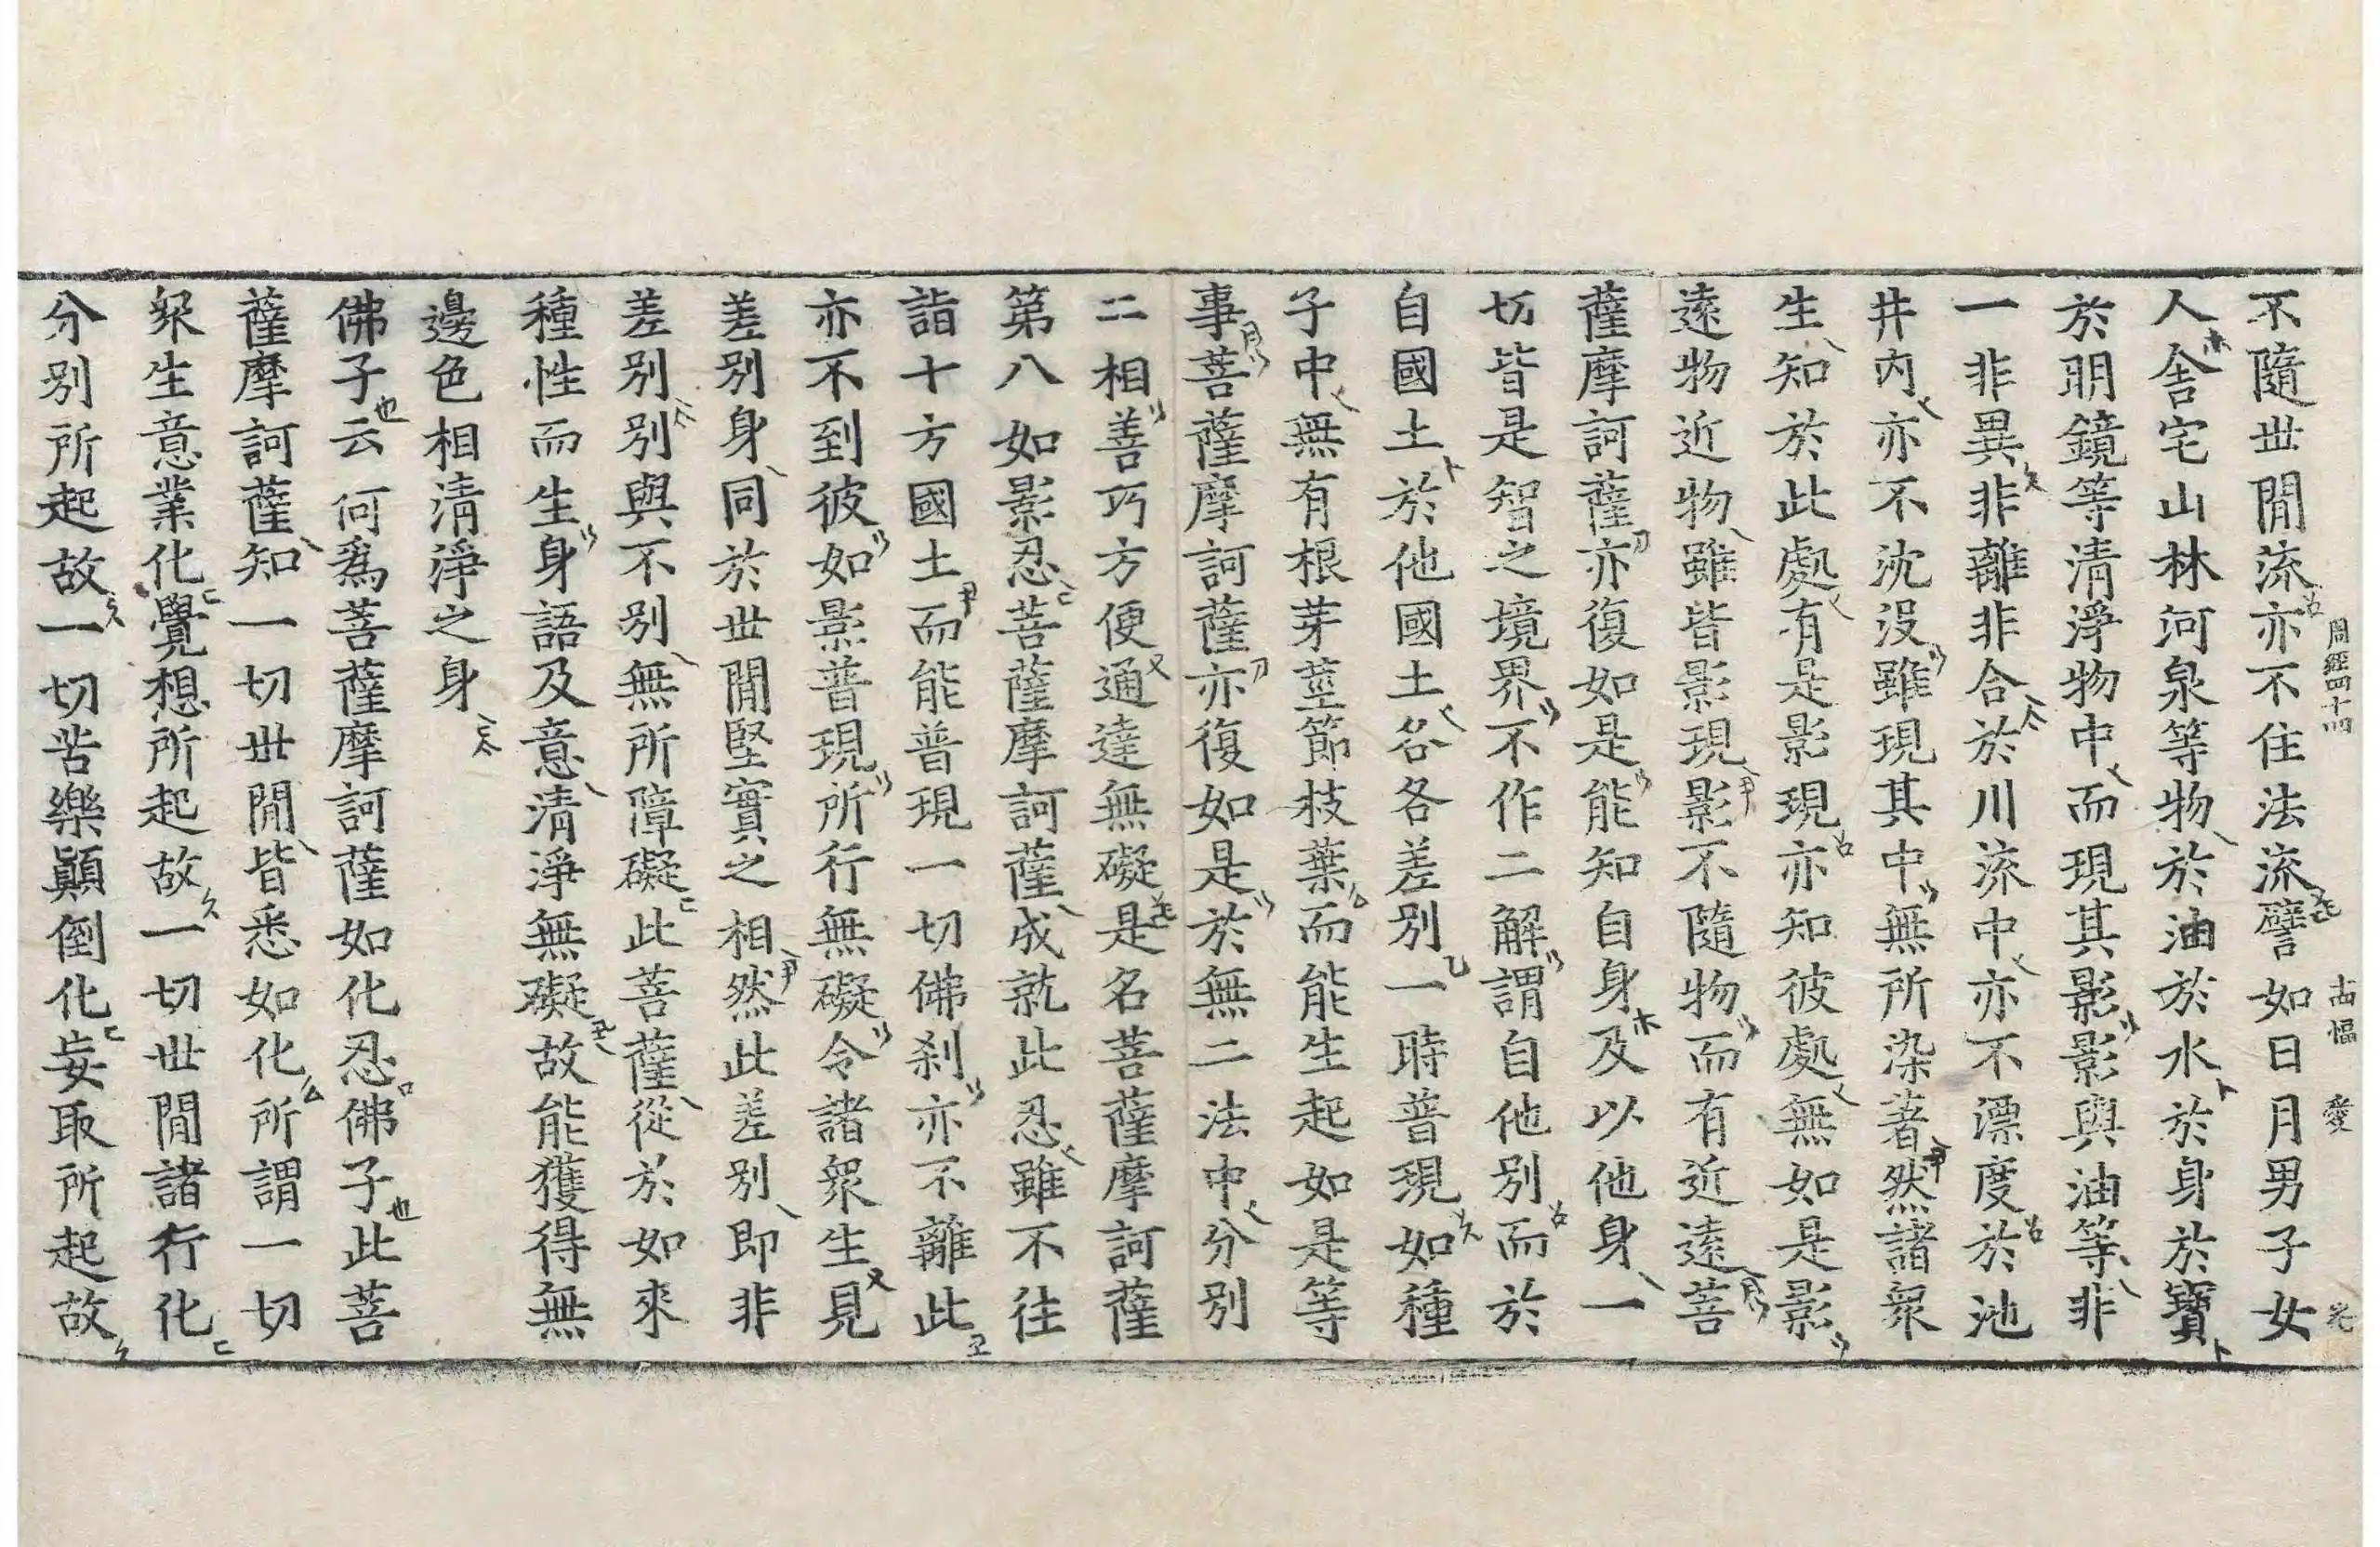 不隨世間流亦不住法流譬如日月男子女
人舍宅山林河泉等物於油於水於身於寶
於明鏡等清淨物中而現其影影與油等非
一非異非離非合於川流中亦不漂度於池
井內亦不沈沒雖現其中無所染著然諸衆
生知於此處有是影現亦知彼處無如是影
遠物近物雖皆影現影不隨物而有近遠菩
薩摩訶薩亦復如是能知自身及以他身一
切皆是智之境界不作二解謂自他別而於
自國土於他國土各各差別一時普現如種
子中無有根芽莖節枝葉而能生起如是等
事菩薩摩訶薩亦復如是於無二法中分別
二相善巧方便通達無礙是名菩薩摩訶薩
第八如影忍菩薩摩訶薩成就此忍雖不往
詣十方國土而能普現一切佛刹亦不離此
亦不到彼如影普現所行無礙令諸衆生見
差別身同於世間堅實之相然此差別即非
差別別與不別無所障礙此菩薩從於如來
種性而生身語及意清淨無礙故能獲得無
邊色相清淨之身
佛子云何爲菩薩摩訶薩如化忍佛子此菩
薩摩訶薩知一切世間皆悉如化所謂一切
衆生意業化覺想所起故一切世間諸行化
分別所起故一切苦樂顚倒化妄取所起故